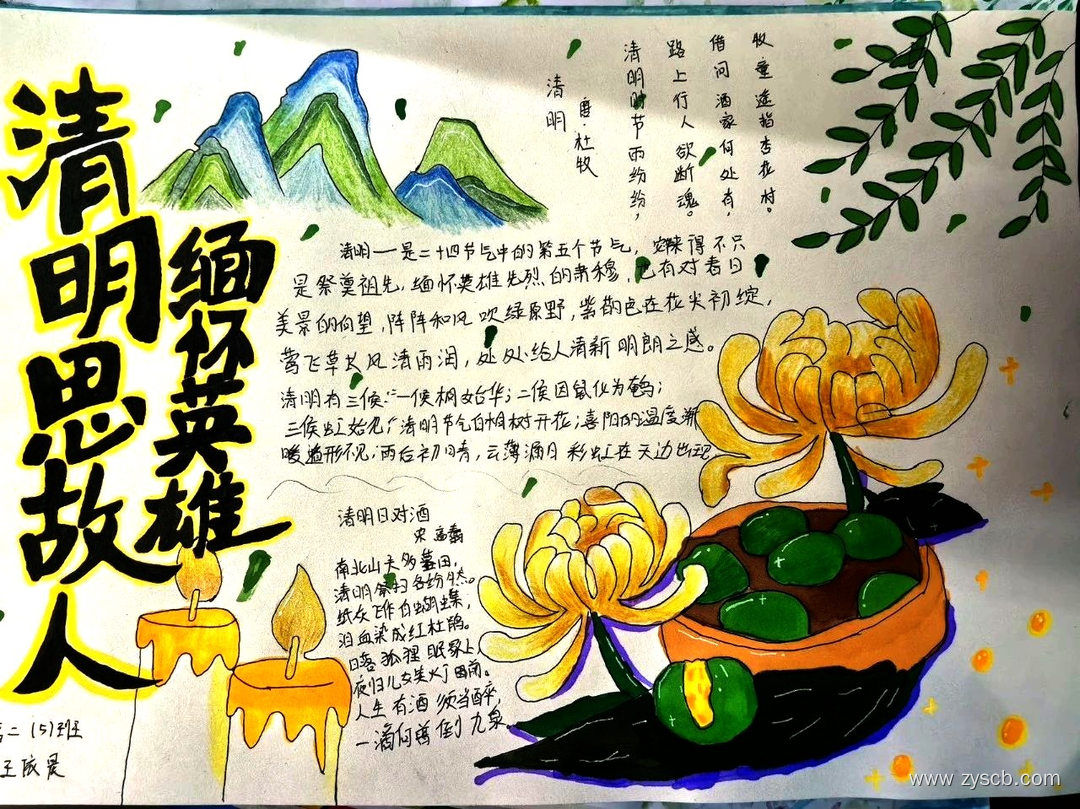 清明思故人
缅怀英雄
清明
唐·杜牧
清明时节雨纷纷，
路上行人欲断魂。
借问酒家何处有，
牧童遥指杏花村。
清明——是二十四节气中的第五个节气，安排得不只
是祭奠祖先，缅怀英雄先烈的肃穆，也有对春日
美景的向望，阵阵和风吹绿原野，紫的色在花尖初绽，
莺飞草长风清雨润，处处给人清新明朗之感。
清明有三候：“一侯桐始华；二侯田鼠化为鹌；
三侯虹始见”清明节气白桐树开花；喜阳的温度渐
暖 形不见，雨后初晴，云薄漏日 彩虹在天边出现
清明日对酒
宋 高翥
南北山头多墓田，
清明祭扫各纷然。
纸灰飞作白蝴蝶，
泪血染成红杜鹃。
日落狐狸眠冢上，
夜归儿女笑灯前。
人生有酒须当醉，
一滴何曾到九泉
二（5）班
王
www.zyscb.com